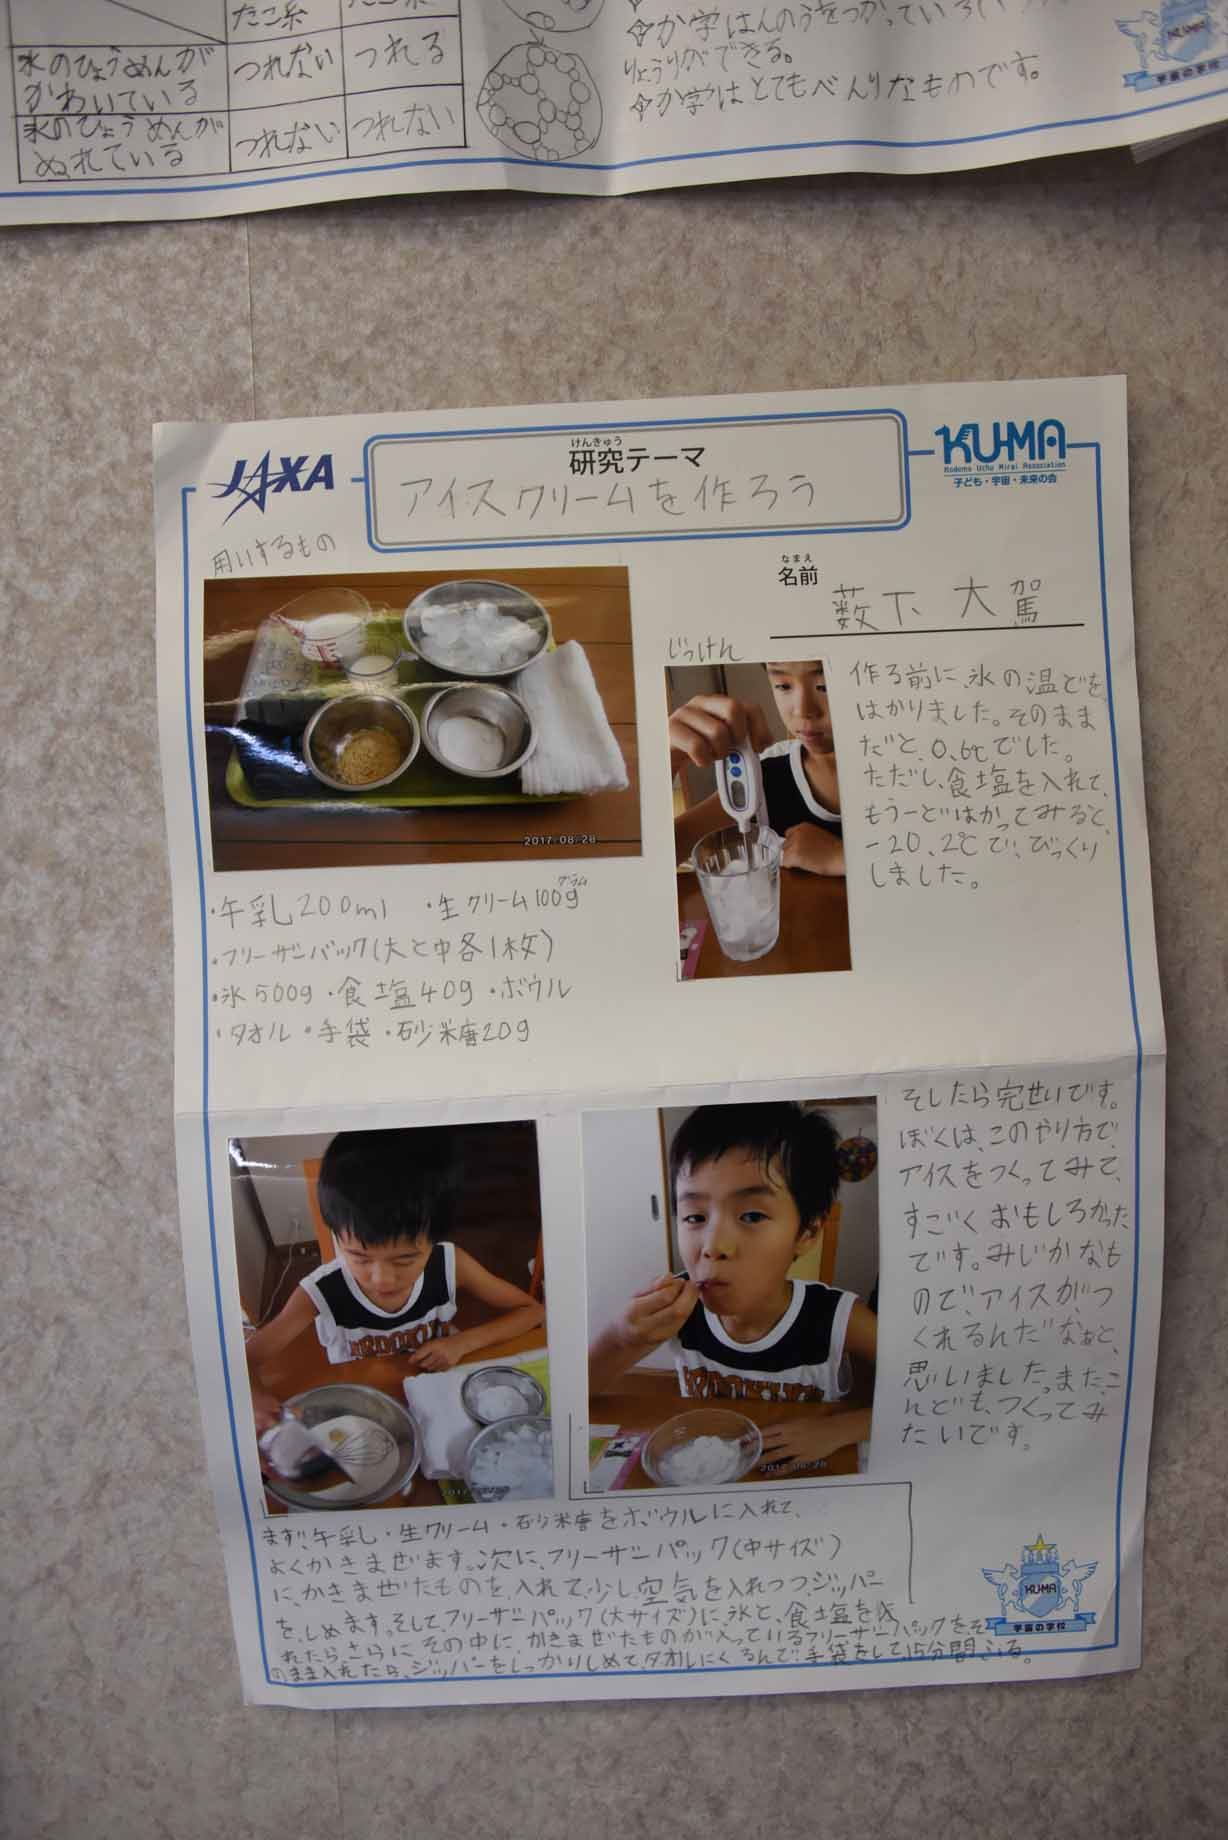 たこ糸
氷のひょうめんが
かわいている
つれない
つれる
氷のひょうめんが
ぬれている
つれない
つれない
りょうりができる。
か学はとてもべんりなものです。
宇宙の学校
JAXA
けんきゅう
研究テーマ
アイスクリームを作ろう
KU-MA
Kodomo Uchu Mirai Association
子ども・宇宙・未来の会
用いするもの
なまえ
名前
薮下大駕
2017/08/28
じっけん
作る前に、氷の温どを
はかりました。そのまま
だと、0.6℃でした。
ただし、食塩を入れて、
もう一どはかってみると、
-20.2℃で、びっくり
しました。
グラム
・牛乳200ml ・生クリーム100g
・フリーザーバック(大と中各1枚)
・氷500g・食塩40g・ボウル
・タオル・手袋・砂糖20g
そしたら完せいです。
ぼくは、このやり方で、
アイスをつくってみて、
すごくおもしろかった
です。みじかなも
ので、アイスが、つ
くれるんだなぁと、
思いました。また、こ
んども、つくってみ
たいです。
2017/08/28
まず、牛乳・生クリーム・砂糖をボウルに入れて、
よくかきまぜます。次に、フリーザーパック(中サイズ)
に、かきまぜたものを、入れて、少し空気を入れつつ、ジッパー
を、しめます。そして、フリーザーパック(大サイズ)に、氷と、食塩を入
れたら、さらに、その中に、かきまぜたものが入っているフリーザーパックを、そ
のまま入れたら、ジッパーをしっかりしめて、タオルにくるんで、手袋をして、15分間、ふる。
KU-MA
宇宙の学校